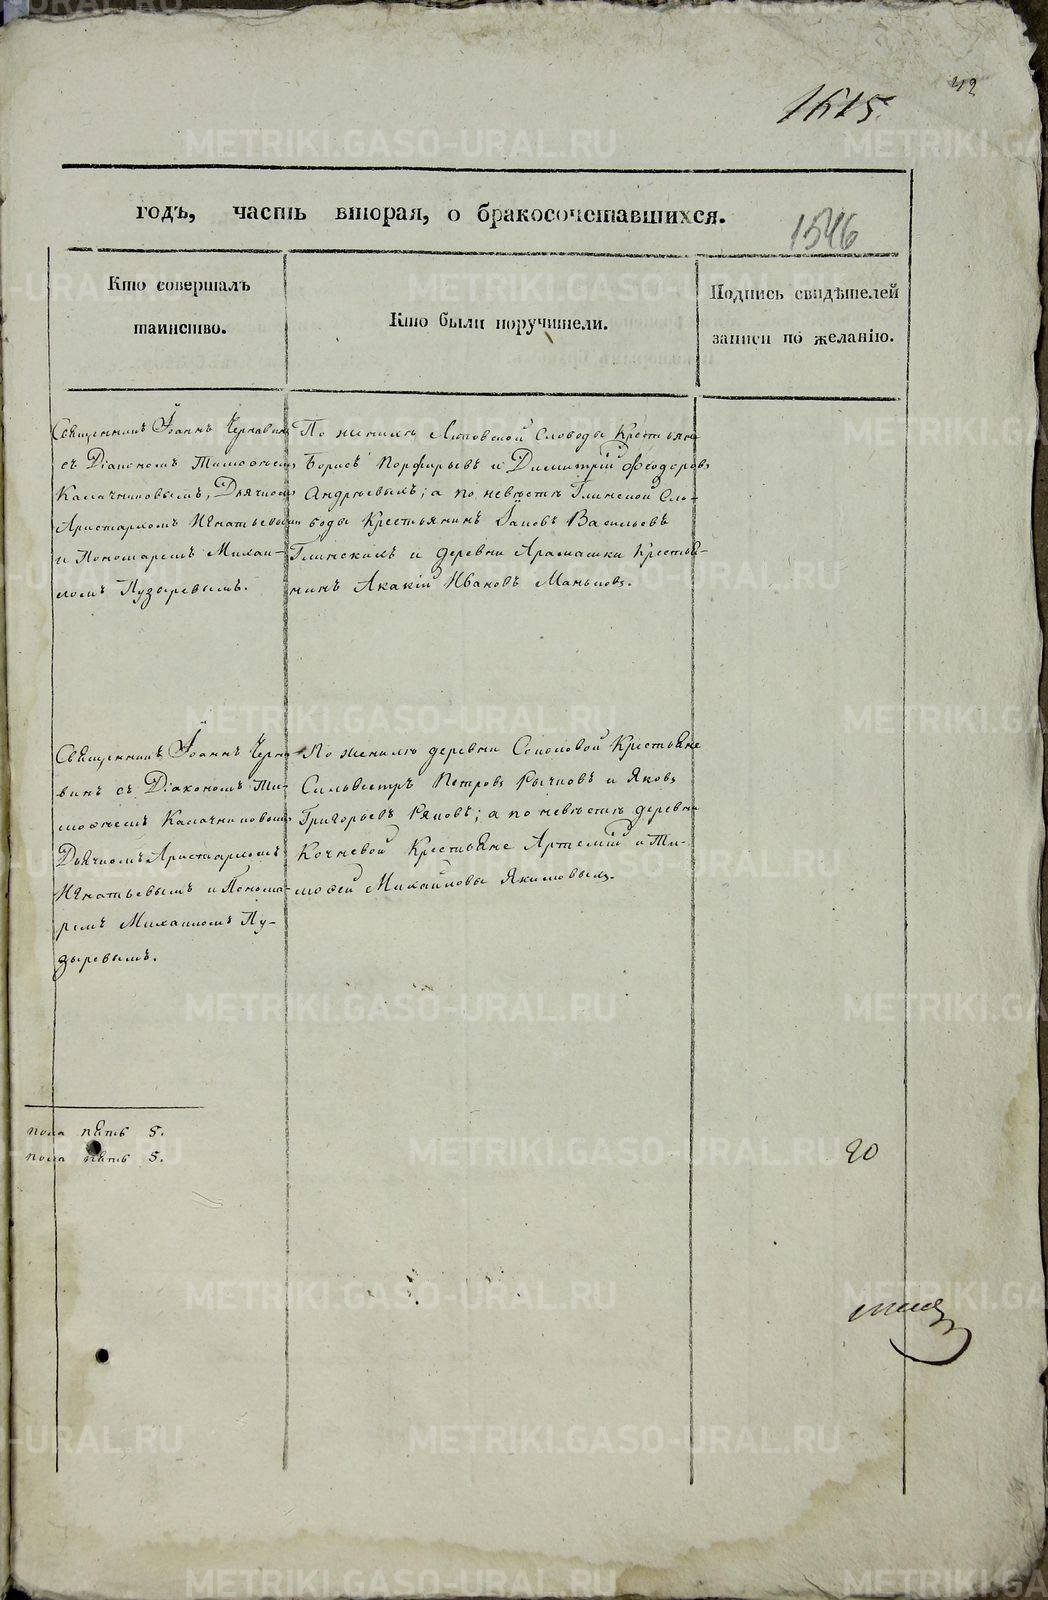 42
1615.
годъ, часть вторая, о бракосочетавшихся.
1546
Кто совершалъ
таинство.
Кто были поручители.
Подпись свидѣтелей
записи по желанію.
Священникъ Іоаннъ Чернавинъ
съ Діакономъ Тимоѳеемъ
Калачниковымъ, Дьячкомъ
Аристархомъ Игнатьевымъ
и Пономаремъ Михаи-
ломъ Пузыревымъ.
По женихѣ Липовской Слободы Крестьяне
Борисъ Порфирьевъ и Димитрій Ѳеодоровъ
Андреевыхъ; а по невѣстѣ Глинской Сло-
боды Крестьянинъ Іаковъ Васильевъ
Глинскихъ и деревни Арамашки Крестья-
нинъ Акакій Ивановъ Маньковъ.
Священникъ Іоаннъ Черна-
винъ съ Діакономъ Ти-
моѳеемъ Калачниковымъ
Дьячкомъ Аристархомъ
Игнатьевымъ и Понома-
ремъ Михаиломъ Пу-
зыревымъ.
По женихѣ деревни Соколовой Крестьяне
Сильвестръ Петровъ Рычковъ и Яковъ
Григорьевъ Ряковъ; а по невѣстѣ деревни
Кочневой Крестьяне Артемій и Ти-
моѳей Михайловы Якимовыхъ.
пола пять 5.
пола пять 5.
20
METRIKI.GASO-URAL.RU